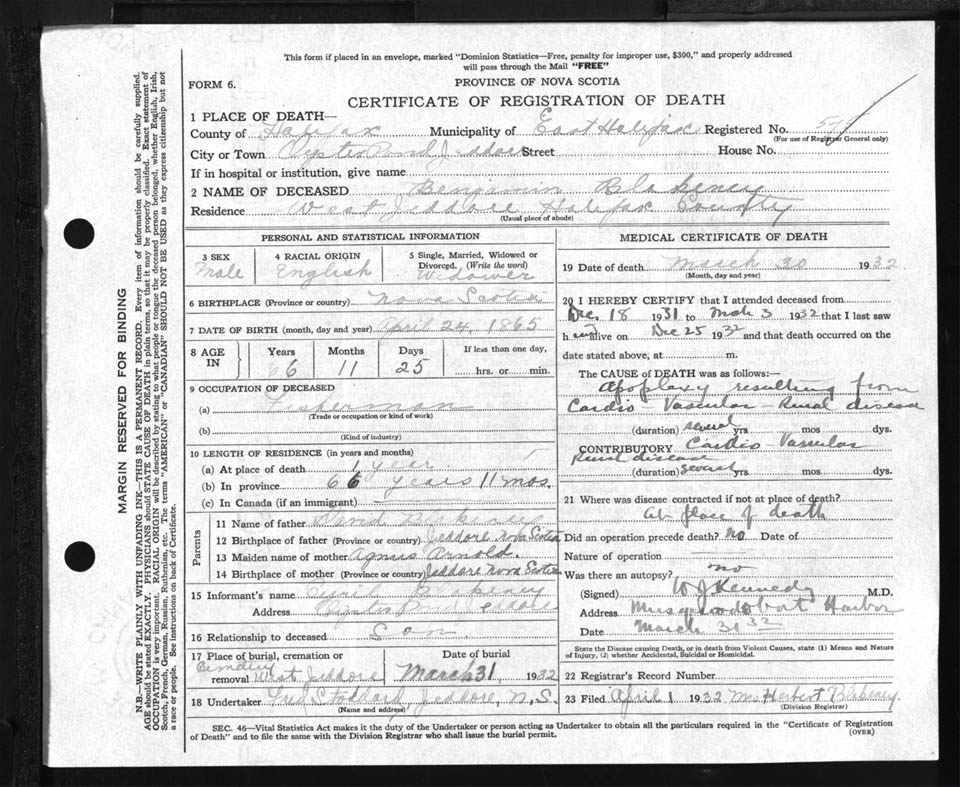 This form if placed in an envelope, marked "Dominion Statistics—Free, penalty for improper use, $300," and properly addressed
will pass through the Mail "FREE"
FORM 6.
PROVINCE OF NOVA SCOTIA
CERTIFICATE OF REGISTRATION OF DEATH
1 PLACE OF DEATH—
County of Halifax Municipality of East Halifax Registered No.
(For use of Registrar General only)
City or Town Oyster Pond Jeddore Street House No.
If in hospital or institution, give name
2 NAME OF DECEASED Benjamin Blakeney
Residence West Jeddore Halifax County
(Usual place of abode)
PERSONAL AND STATISTICAL INFORMATION
3 SEX
Male
4 RACIAL ORIGIN
English
5 Single, Married, Widowed or
Divorced. (Write the word)
Widower
6 BIRTHPLACE (Province or country) Nova Scotia
7 DATE OF BIRTH (month, day and year) April 24, 1865
8 AGE IN
Years Months Days If less than one day,
66 11 25 hrs. or min.
9 OCCUPATION OF DECEASED
(a) Fisherman
(Trade or occupation or kind of work)
(b)
(Kind of industry)
10 LENGTH OF RESIDENCE (in years and months)
(a) At place of death 1 year
(b) In province 66 years 11 mos.
(c) In Canada (if an immigrant)
Parents
11 Name of father David Blakeney
12 Birthplace of father (Province or country) Jeddore Nova Scotia
13 Maiden name of mother Agnus Arnold.
14 Birthplace of mother (Province or country) Jeddore Nova Scotia
15 Informant's name Blakeney
Address Oyster Pond Jeddore
16 Relationship to deceased Son
17 Place of burial, cremation or Date of burial
Cemetery
removal West Jeddore March 31 1932
18 Undertaker Stoddard, Jeddore, N.S.
(Name and address)
MEDICAL CERTIFICATE OF DEATH
19 Date of death March 30 1932
(Month, day and year)
20 I HEREBY CERTIFY that I attended deceased from
Dec 18 1931 to Mch 3 1932 that I last saw
h im alive on Dec 25 1932 and that death occurred on the
date stated above, at m.
The CAUSE of DEATH was as follows:—
Apoplaxy resulting from
Cardio-Vascular-Renal disease
(duration) several yrs. mos. dys.
CONTRIBUTORY Cardio-Vascular
Renal disease
(duration) several yrs. mos. dys.
21 Where was disease contracted if not at place of death?
At place of death
Did an operation precede death? no Date of
Nature of operation
Was there an autopsy? no
(Signed) W J Kennedy M.D.
Address Musquodoboit Harbor
Date March 31 32
State the Disease causing Death, or in death from Violent Causes, state (1) Means and Nature
of Injury, (2) whether Accidental, Suicidal or Homicidal.
22 Registrar's Record Number
23 Filed April 1 1932 Mrs Herbert Blakeney.
(Division Registrar)
SEC. 46—Vital Statistics Act makes it the duty of the Undertaker or person acting as Undertaker to obtain all the particulars required in the "Certificate of Registration
of Death" and to file the same with the Division Registrar who shall issue the burial permit.
(OVER)
MARGIN RESERVED FOR BINDING
N.B.—WRITE PLAINLY WITH UNFADING INK—THIS IS A PERMANENT RECORD. Every item of information should be carefully supplied.
AGE should be stated EXACTLY. PHYSICIANS should STATE CAUSE OF DEATH in plain terms, so that it may be properly classified. Exact statement of
OCCUPATION is very important. RACIAL ORIGIN will be described by stating to what people or tongue the deceased person belonged, whether English, Irish,
Scotch, French, German, Russian, Ruthenian, etc. The terms "AMERICAN" or "CANADIAN" SHOULD NOT BE USED as they express citizenship but not
a race or people. See instructions on back of Certificate.